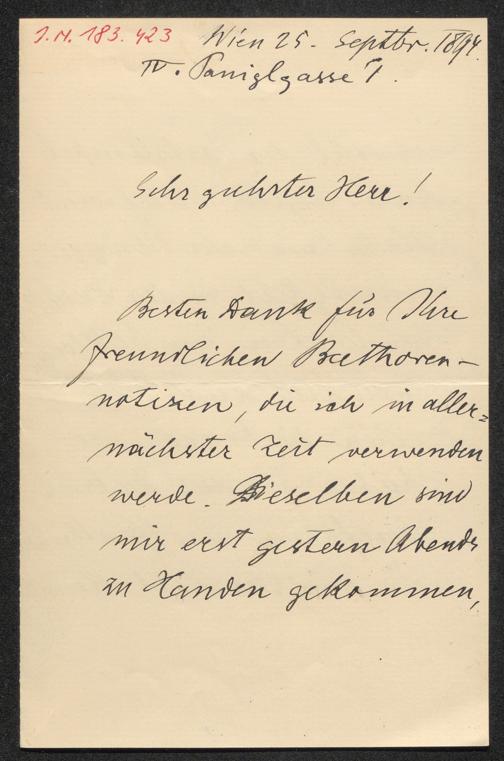 I.N. 183.423
Wien 25. Septbr. 1894.
IV. Paniglgasse 1.
Sehr geehrter Herr!
Besten Dank für Ihre
freundlichen Beethoven-
notizen, die ich in aller=
nächster Zeit verwenden
werde. Dieselben sind
mir erst gestern Abends
zu Handen gekommen,